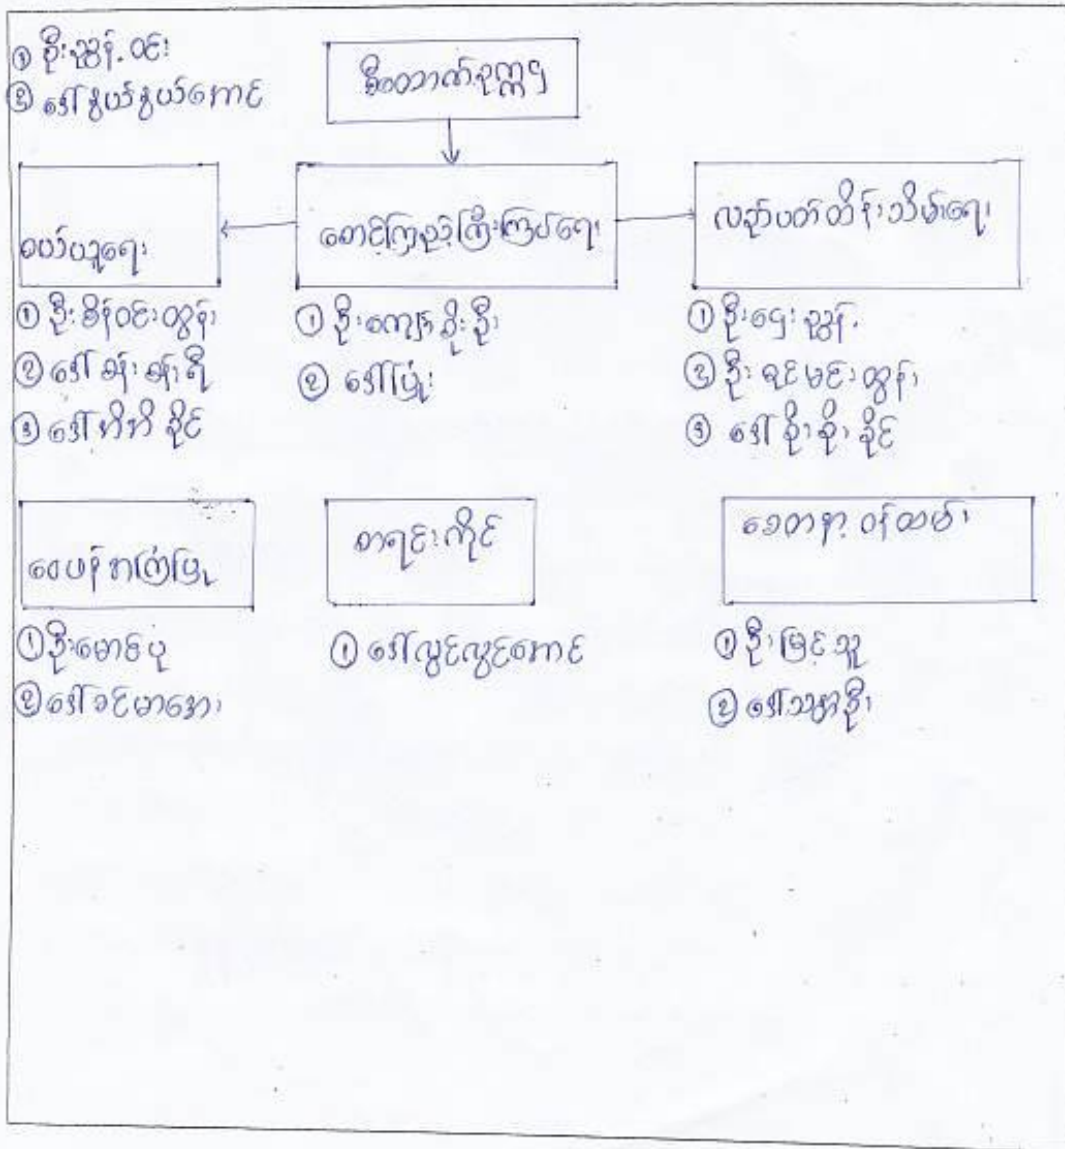 ① ဦးညွန့်ဝင်း
② ဒေါ်နွယ်နွယ်အောင်
စီမံတာဝန်ဥက္ကဌ
ဝယ်ယူရေး
① ဦးစိန်ဝင်းထွန်း
② ဒေါ်ခန်းခန်းရီ
③ ဒေါ်ဘိဘိခိုင်
စောင့်ကြည့်ကြီးကြပ်ရေး
① ဦးကျော်စိုးဦး
② ဒေါ်ပြုံး
လုပ်ငန်းထိန်းသိမ်းရေး
① ဦးဌေးညွန့်
② ဦးရင်မင်းထွန်း
③ ဒေါ်စိုးစိုးခိုင်
ဝေဖန်အကြံပြု
① ဦးမောင်ပု
② ဒေါ်ခင်မာအေး
စာရင်းကိုင်
① ဒေါ်လွင်လွင်အောင်
စေတနာ့ဝန်ထမ်း
① ဦးမြင့်သူ
② ဒေါ်သန္တာဦး